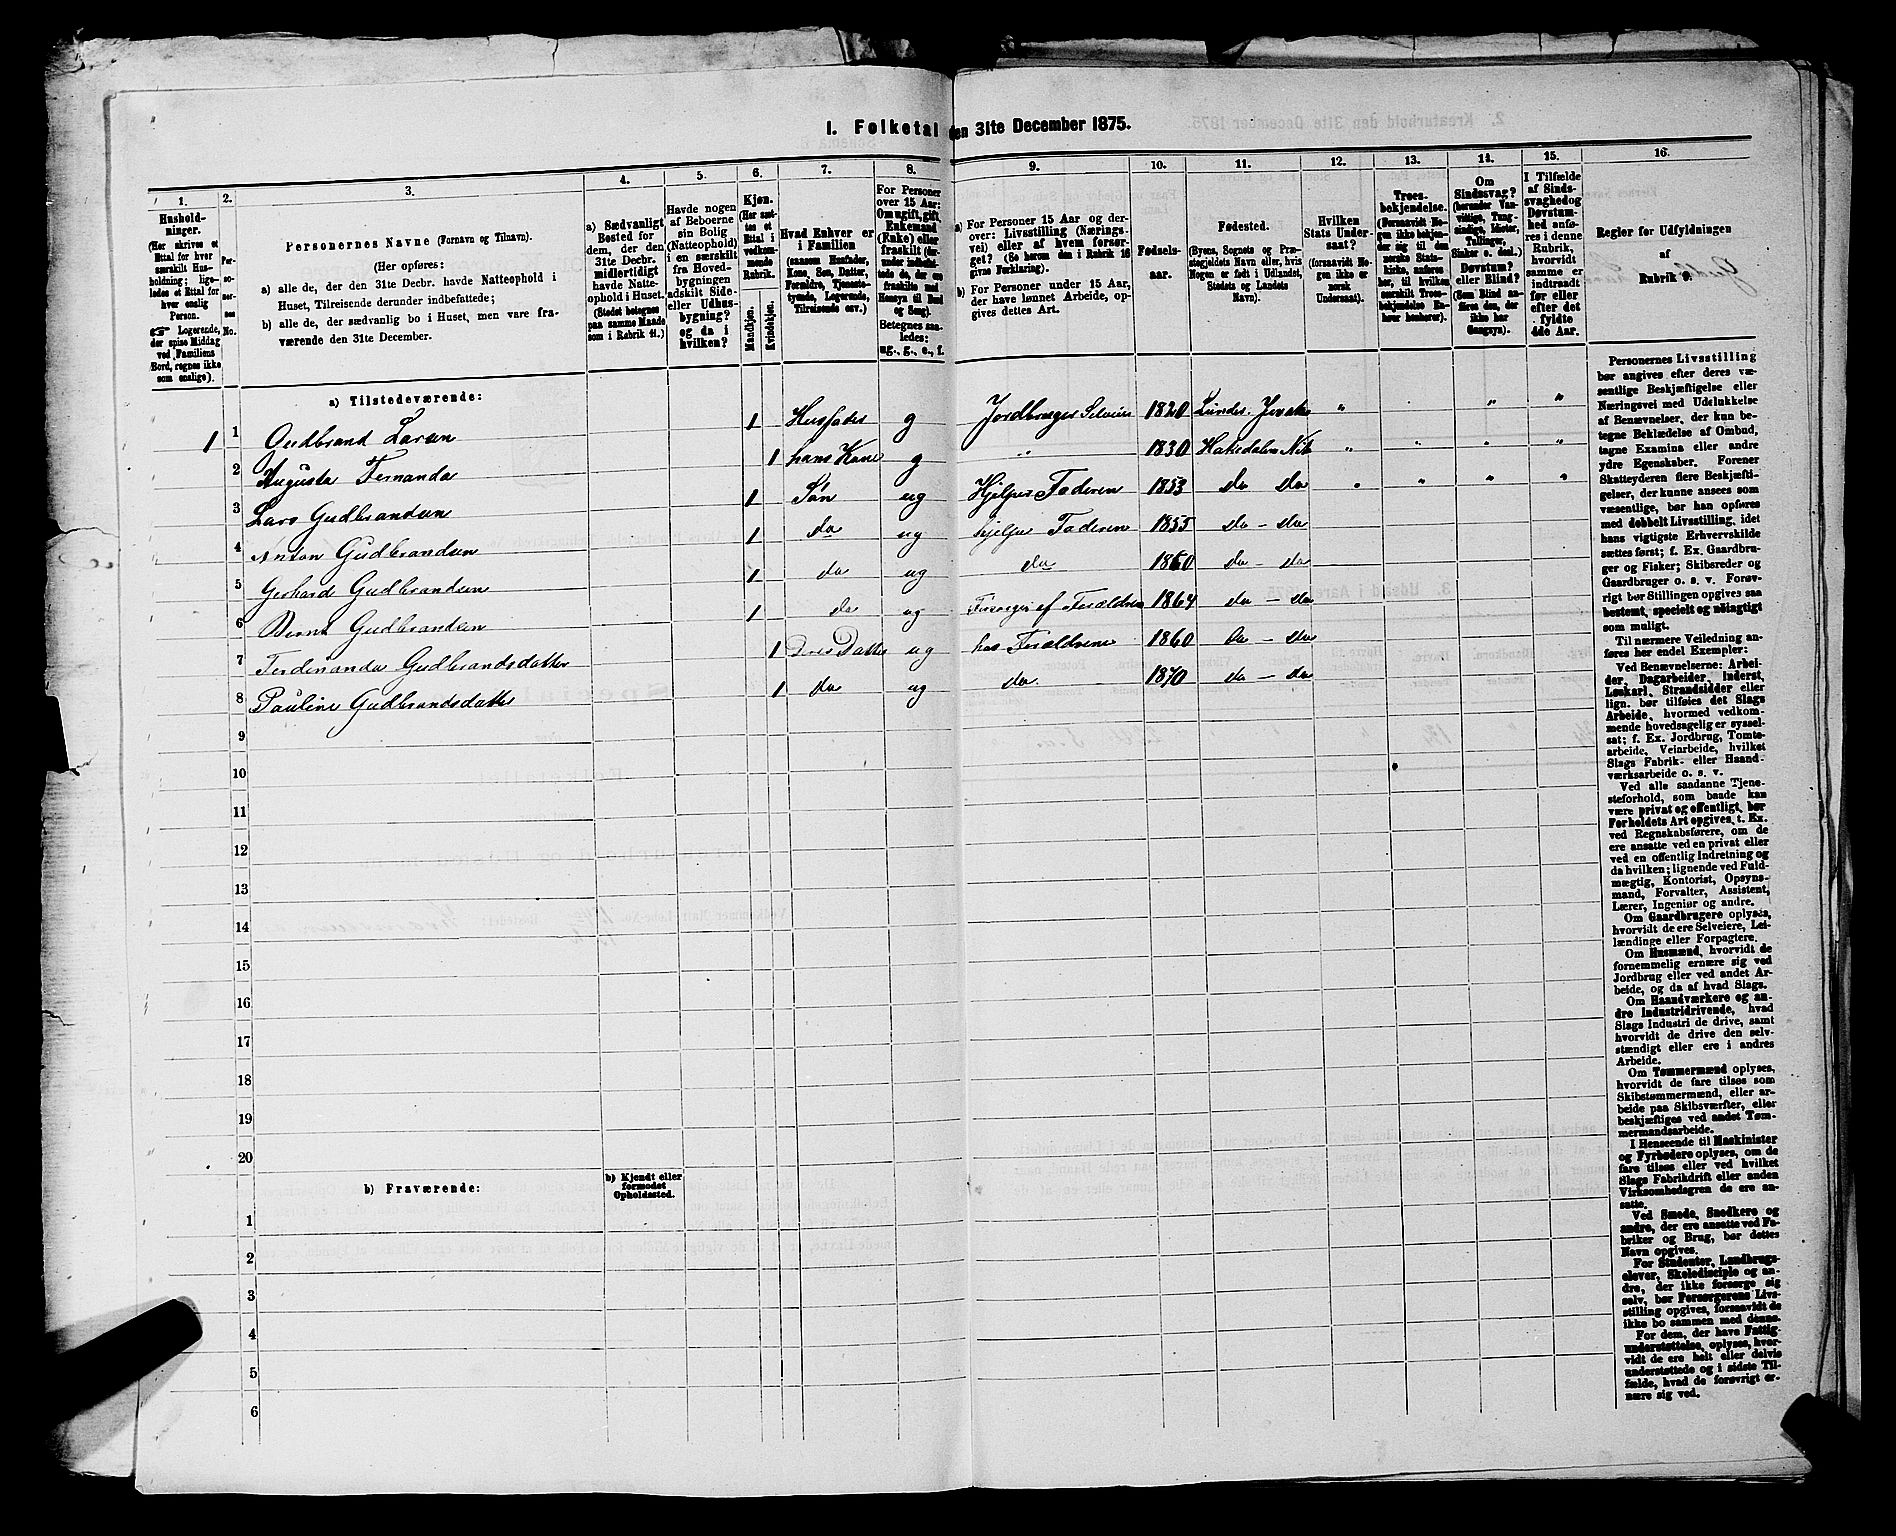 I. Folketal den 31te December 1875.
1. 2. 3. 4. 5. 6. 7. 8. 9. 10. 11. 12. 13. 14. 15. 16.
Husholdninger.
(Her skrives et Ettal for hver særskilt Husholdning; ligeledes et Ettal for hver enslig Person.
☞ Logerende, der spise Middag ved Familiens Bord, regnes ikke som enslige).
Personernes No.
Personernes Navne (Fornavn og Tilnavn).
(Her opføres:
a) alle de, der den 31te Decbr. havde Natteophold i Huset, Tilreisende derunder indbefattede;
b) alle de, der sædvanlig bo i Huset, men vare fraværende den 31te December.
a) Sædvanligt Bosted for dem, der den 31te Decbr. midlertidigt havde Natteophold i Huset. (Stedet betegnes paa samme Maade som i Rubrik 11.)
Havde nogen af Beboerne sin Bolig (Natteophold) i en særskilt fra Hovedbygningen adskilt Side- eller Udhusbygning? og da i hvilken?
Kjøn. (Her sættes et Ettal i vedkommende Rubrik.
Mandkjøn.
Kvindekjøn.
Hvad Enhver er i Familien
(saasom Husfader, Kone, Søn, Datter, Forældre, Tjenestetyende, Logerende, Tilreisende osv.)
For Personer over 15 Aar: Om ugift, gift, Enkemand (Enke) eller fraskilt
Betegnes saaledes: ug., g., e., f.
a) For Personer 15 Aar og derover: Livsstilling (Næringsvei) eller af hvem forsørget? (Se herom den i Rubrik 16 givne Forklaring).
b) For Personer under 15 Aar, der have lønnet Arbeide, opgives dettes Art.
Fødselsaar.
Fødested.
(Byens, Sognets og Præstegjeldets Navn eller, hvis Nogen er født i Udlandet, Stedets og Landets Navn).
Hvilken Stats Undersaat?
(forsaavidt Nogen ikke er norsk Undersaat).
Troesbekjendelse.
(Forsaavidt Nogen ikke bekjender sig til den norske Statskirke, anføres her, til hvilken særskilt Troesbekjendelse Enhver henhører).
Om Sindssvag? (herunder Vanvittige, Tungsindige, Idioter, Tullinger, Sinker o. desl.) Døvstum? eller Blind? (Som Blind anføres den, der ikke har Gangsyn).
I Tilfælde af Sindssvaghed og Døvstumhed anføres i denne Rubrik, hvorvidt samme er indtraadt før eller efter det fyldte 4de Aar.
Regler for Udfyldningen
af
Rubrik 9.
a) Tilstedeværende:
1 1 Gudbrand Larsen 1 Husfader g Jordbruger Selveier 1820 Lunder. Jevnaker
2 Augusta Fernanda 1 hans Kone g " 1830 Hakedalen Nit
3 Lars Gudbrandsen 1 Søn ug Hjelper Faderen 1853 do do
4 Anton Gudbrandsen 1 do ug hjelper Faderen 1855 do - do
5 Gerhard Gudbrandsen 1 do ug do 1860 do - do
6 Bernt Gudbrandsen 1 do ug Forsørges af Forældrene 1864 do - do
7 Ferdinanda Gudbrandsdatter 1 Deres Datter ug hos Forældrene 1860 do - do
8 Pauline Gudbrandsdatter 1 do ug do 1870 do - do
9
10
11
12
13
14
15
16
17
18
19
20
b) Fraværende:
b) Kjendt eller formodet Opholdssted.
1
2
3
4
5
6
Personernes Livsstilling
bør angives efter deres væ-
sentlige Beskjæftigelse eller
Næringsvei med Udelukkelse
af Benævnelser, der kun be-
tegne Beklædelse af Ombud,
tagne Examina eller andre
ydre Egenskaber. Forener
Skatteyderen flere Beskjæfti-
gelser, der kunne ansees som
væsentlige, bør han opføres
med dobbelt Livsstilling, idet
hans vigtigste Erhvervskilde
sættes først; f. Ex. Gaardbru-
ger og Fisker; Skibsreder og
Gaardbruger o. s. v. Forøv-
rigt bør Stillingen opgives saa
bestemt, specielt og nöiagtigt
som muligt.
Til nærmere Veiledning an-
føres her endel Exempler:
Ved Benævnelserne: Arbei-
der, Dagarbeider, Inderst,
Løskarl, Strandsidder eller
lign. bør tilføies det Slags
Arbeide, hvormed vedkom-
mende hovedsagelig er syssel-
sat; f. Ex. Jordbrug, Tomte-
arbeide, Veiarbeide, hvilket
Slags Fabrik- eller Haand-
værksarbeide o. s. v.
Ved alle saadanne Tjene-
steforhold, som baade kan
være privat og offentligt, bør
Forholdets Art opgives, t. Ex.
ved Regnskabsførere, om de
ere ansatte ved en privat eller
ved en offentlig Indretning og
da hvilken; lignende ved Fuld-
mægtig, Kontorist, Opsyns-
mand, Forvalter, Assistent,
Lærer, Ingeniør og andre.
Om Gaardbrugere oplyses,
hvorvidt de ere Selveiere, Lei-
lændinge eller Forpagtere.
Om Husmænd, hvorvidt de
fornemmelig ernære sig ved
Jordbrug eller ved andet Ar-
beide, og da af hvad Slags.
Om Haandværkere og an-
dre Industridrivende, hvad
Slags Industri de drive, samt
hvorvidt de drive den selv-
stændigt eller ere i andres
Arbeide.
Om Tømmermænd oplyses,
hvorvidt de fare tilsøs som
Skibstømmermænd, eller ar-
beide paa Skibsværfter, eller
beskjæftiges ved andet Tøm-
mermandsarbeide.
I Henseende til Maskinister
og Fyrbødere oplyses, om de
fare tilsøs eller ved hvilket
Slags Fabrikdrift eller anden
Virksomhedsgren de ere an-
satte.
Ved Smede, Snedkere og
andre, der ere ansatte ved Fa-
briker og Brug, bør dettes
Navn opgives.
For Studenter, Landbrugs-
elever, Skoledisciple og an-
dre, der ikke forsørge sig
selv, bør Forsørgerens Livs-
stilling opgives, forsaavidt de
ikke bo sammen med denne.
For dem, der have Fattig-
understøttelse, oplyses, hvor-
vidt de ere helt eller delvis
understøttede og i sidste Til-
fælde, hvad de forøvrigt er-
nære sig ved.